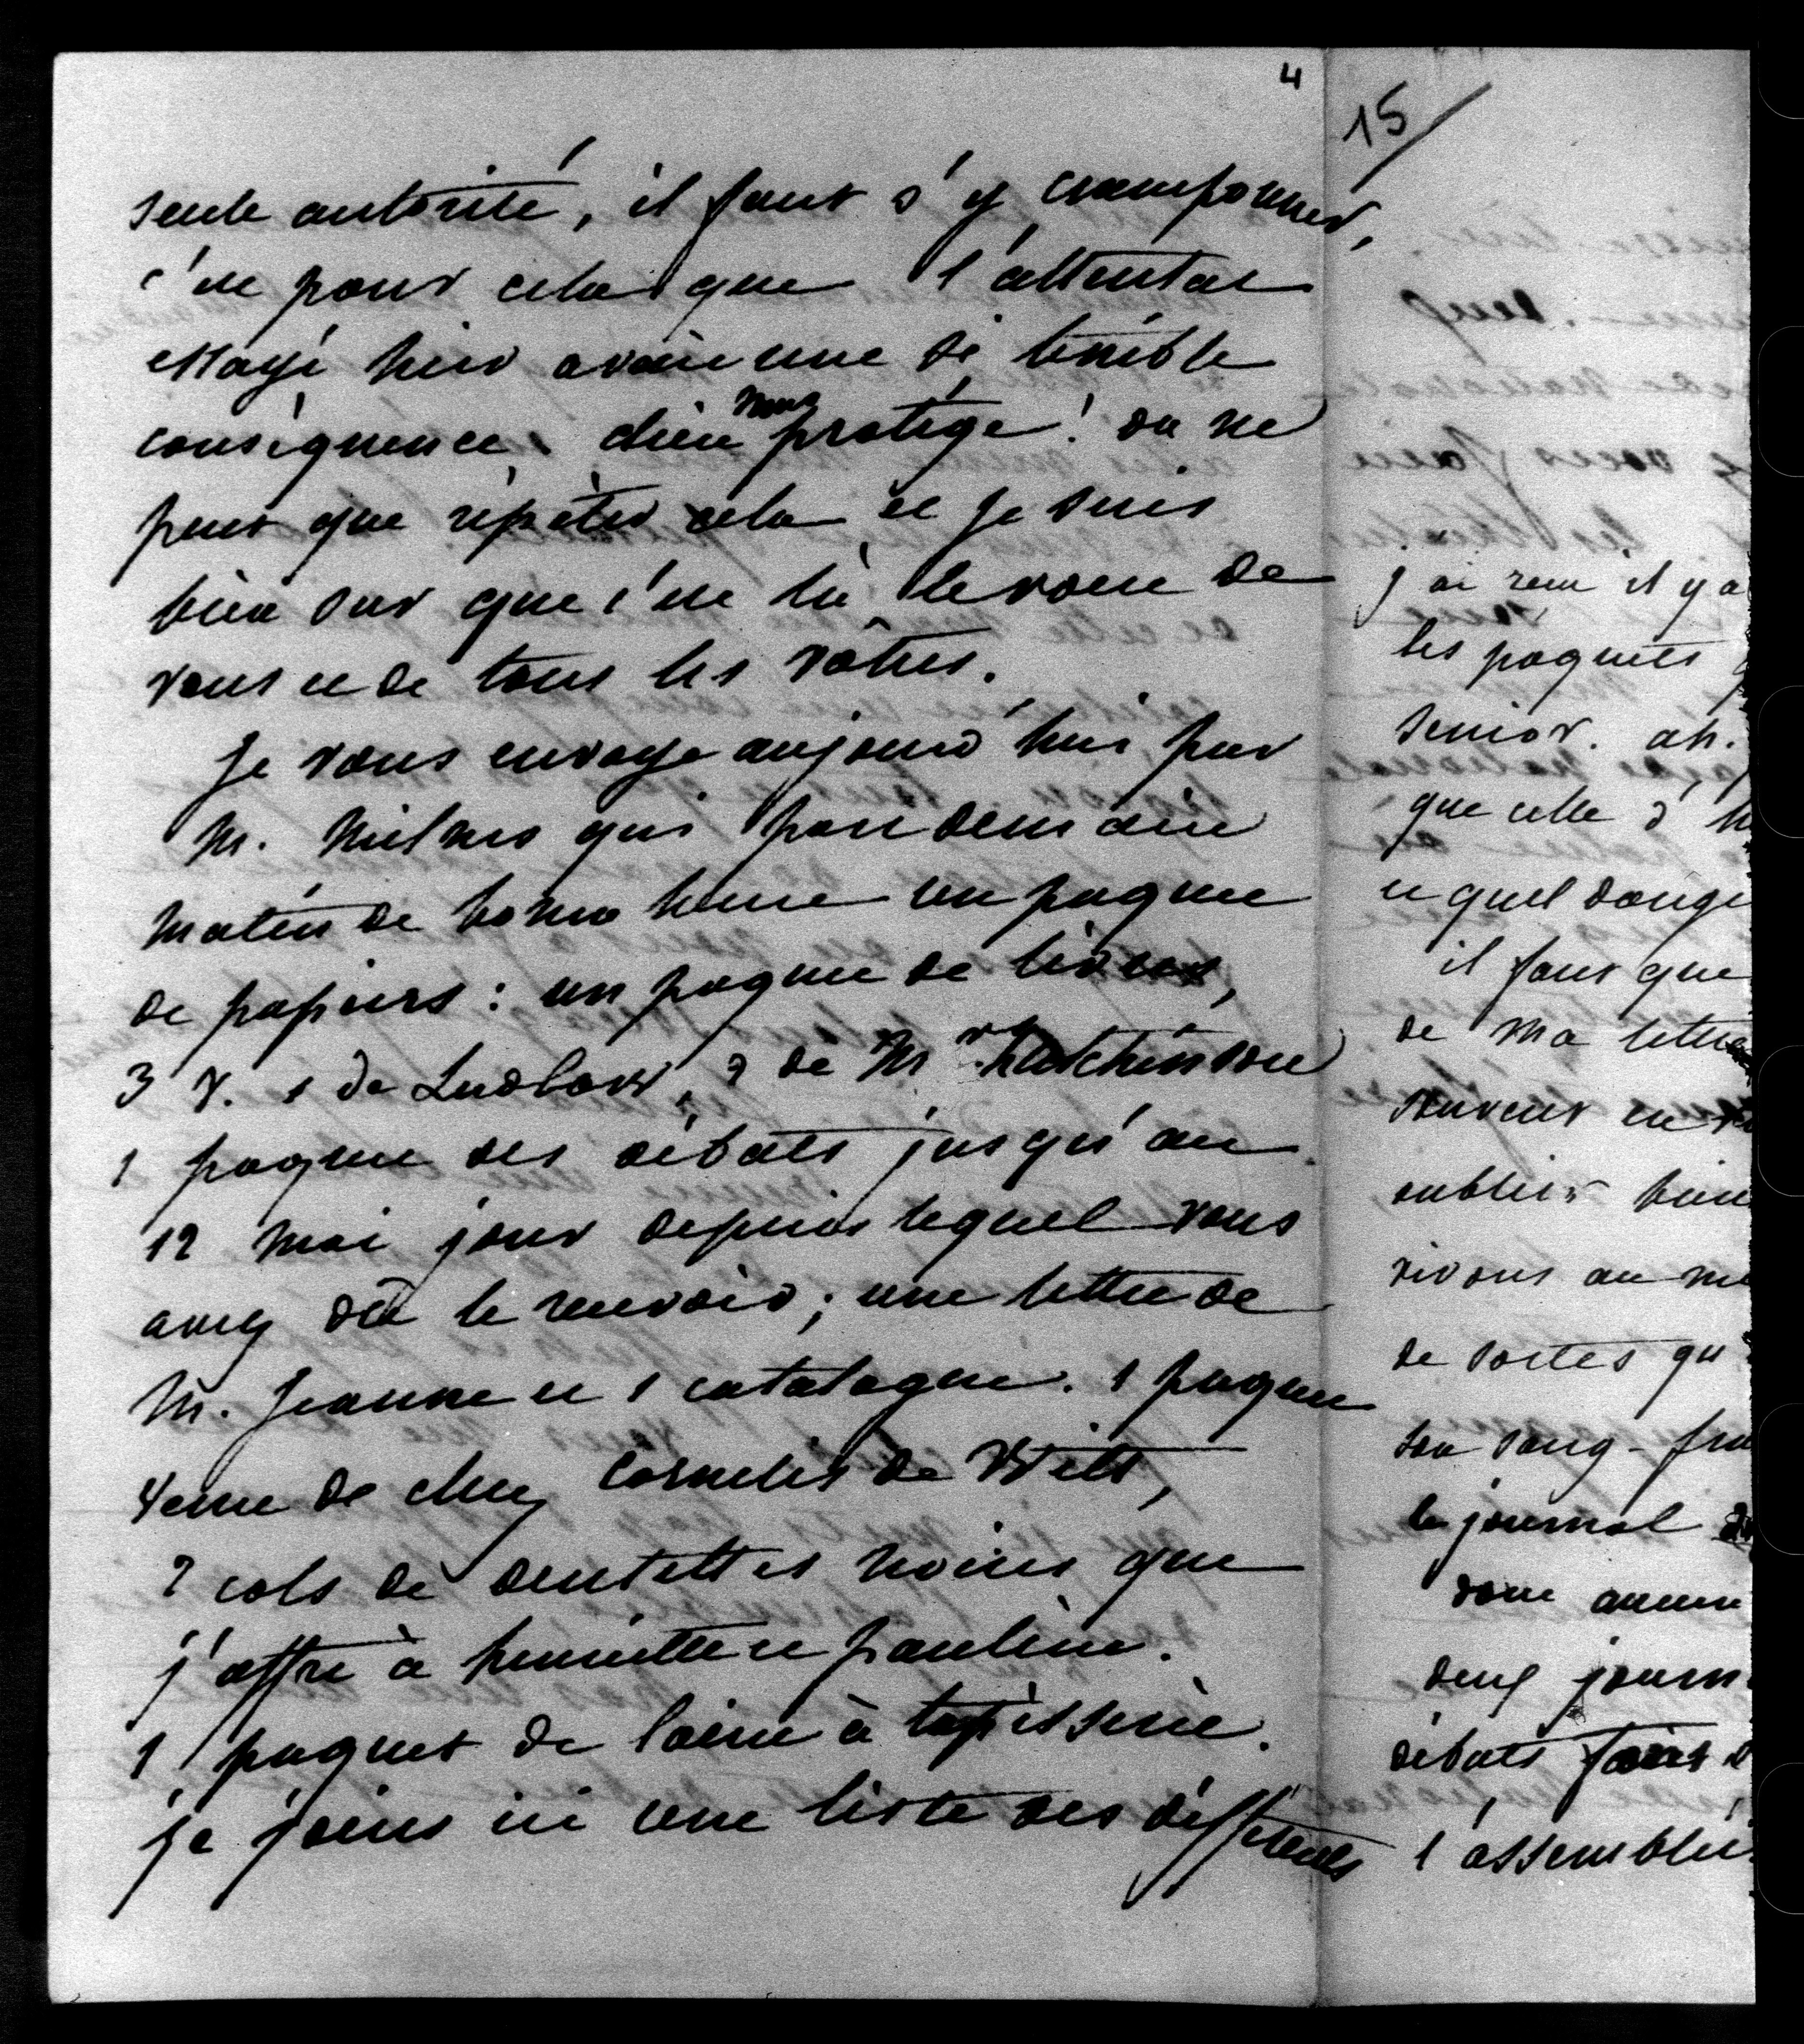 4
seule autorité, il faut s'y cramponner,
c'est pour cela que l'attentat
essayé hier avait une si terrible
conséquence. dieu nous protège! on ne
peut que répéter cela et je suis
bien sur que c'est là le voeu de
vous et de tous les vôtres.
Je vous envoye aujourd'hui par
M. qui part demain
matin de bonne heure un paquet
de papiers: un paquet de livres,
3 v. 1 de Ludlow, 2 de Mr Hutchinson
1 paquet des débats jusqu'au
12 mai jour depuis lequel vous
avez dû le recevoir; une lettre de
M. Jeanne et 1 catalogue. 1 paquet
venu de chez Cornelis de Witt,
2 cols de dentelles noires que
j'offre à henriette et pauline.
1 paquet de laine à tapisserie.
je joins ici une liste des différents
15
j'ai reçu il y a
les paquets
senior. ah.
que celle d'h
et quel dange
il faut que
de ma lettre
souvent en
oublier bien
vivons au mi
de sortes qu
son sang-froi
le journal
dont aucun
deux journ
débats
l'assemblée